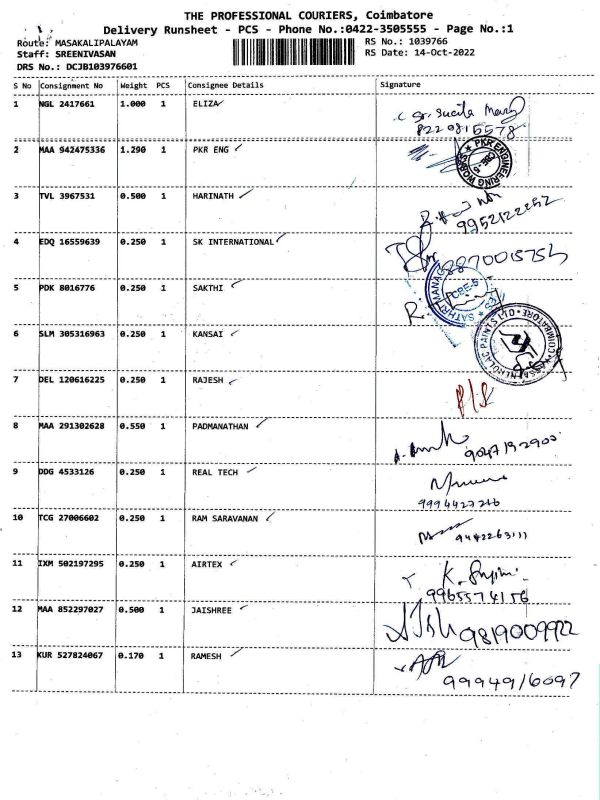 THE PROFESSIONAL COURIERS, Coimbatore
Delivery Runsheet - PCS - Phone No.:0422-3505555 - Page No.:1
Route: MASAKALIPALAYAM RS No.: 1039766
Staff: SREENIVASAN RS Date: 14-Oct-2022
DRS No.: DCJB103976601
S No Consignment No Weight PCS Consignee Details Signature
1 NGL 2417661 1.000 1 ELIZA
8220815578
2 MAA 942475336 1.290 1 PKR ENG PKR ENGINEERING WORKS
3 TVL 3967531 0.500 1 HARINATH
9952122252
4 EDQ 16559639 0.250 1 SK INTERNATIONAL
5 PDK 8016776 0.250 1 SAKTHI
6 SLM 305316963 0.250 1 KANSAI
7 DEL 120616225 0.250 1 RAJESH
8 MAA 291302628 0.550 1 PADMANATHAN 9047192900
9 DDG 4533126 0.250 1 REAL TECH
9994427216
10 TCG 27006602 0.250 1 RAM SARAVANAN 9442263111
11 IXM 502197295 0.250 1 AIRTEX
9965574156
12 MAA 852297027 0.500 1 JAISHREE 9819009922
13 KUR 527824067 0.170 1 RAMESH
9994916097